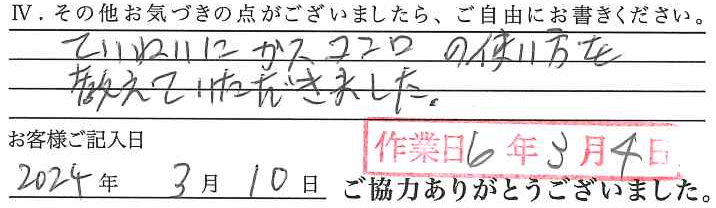 Ⅳ．その他お気づきの点がございましたら、ご自由にお書きください。
ていねいにガスコンロの使い方を
教えていただきました。
お客様ご記入日
作業日6年3月4日
2024年 3月 10日 ご協力ありがとうございました。